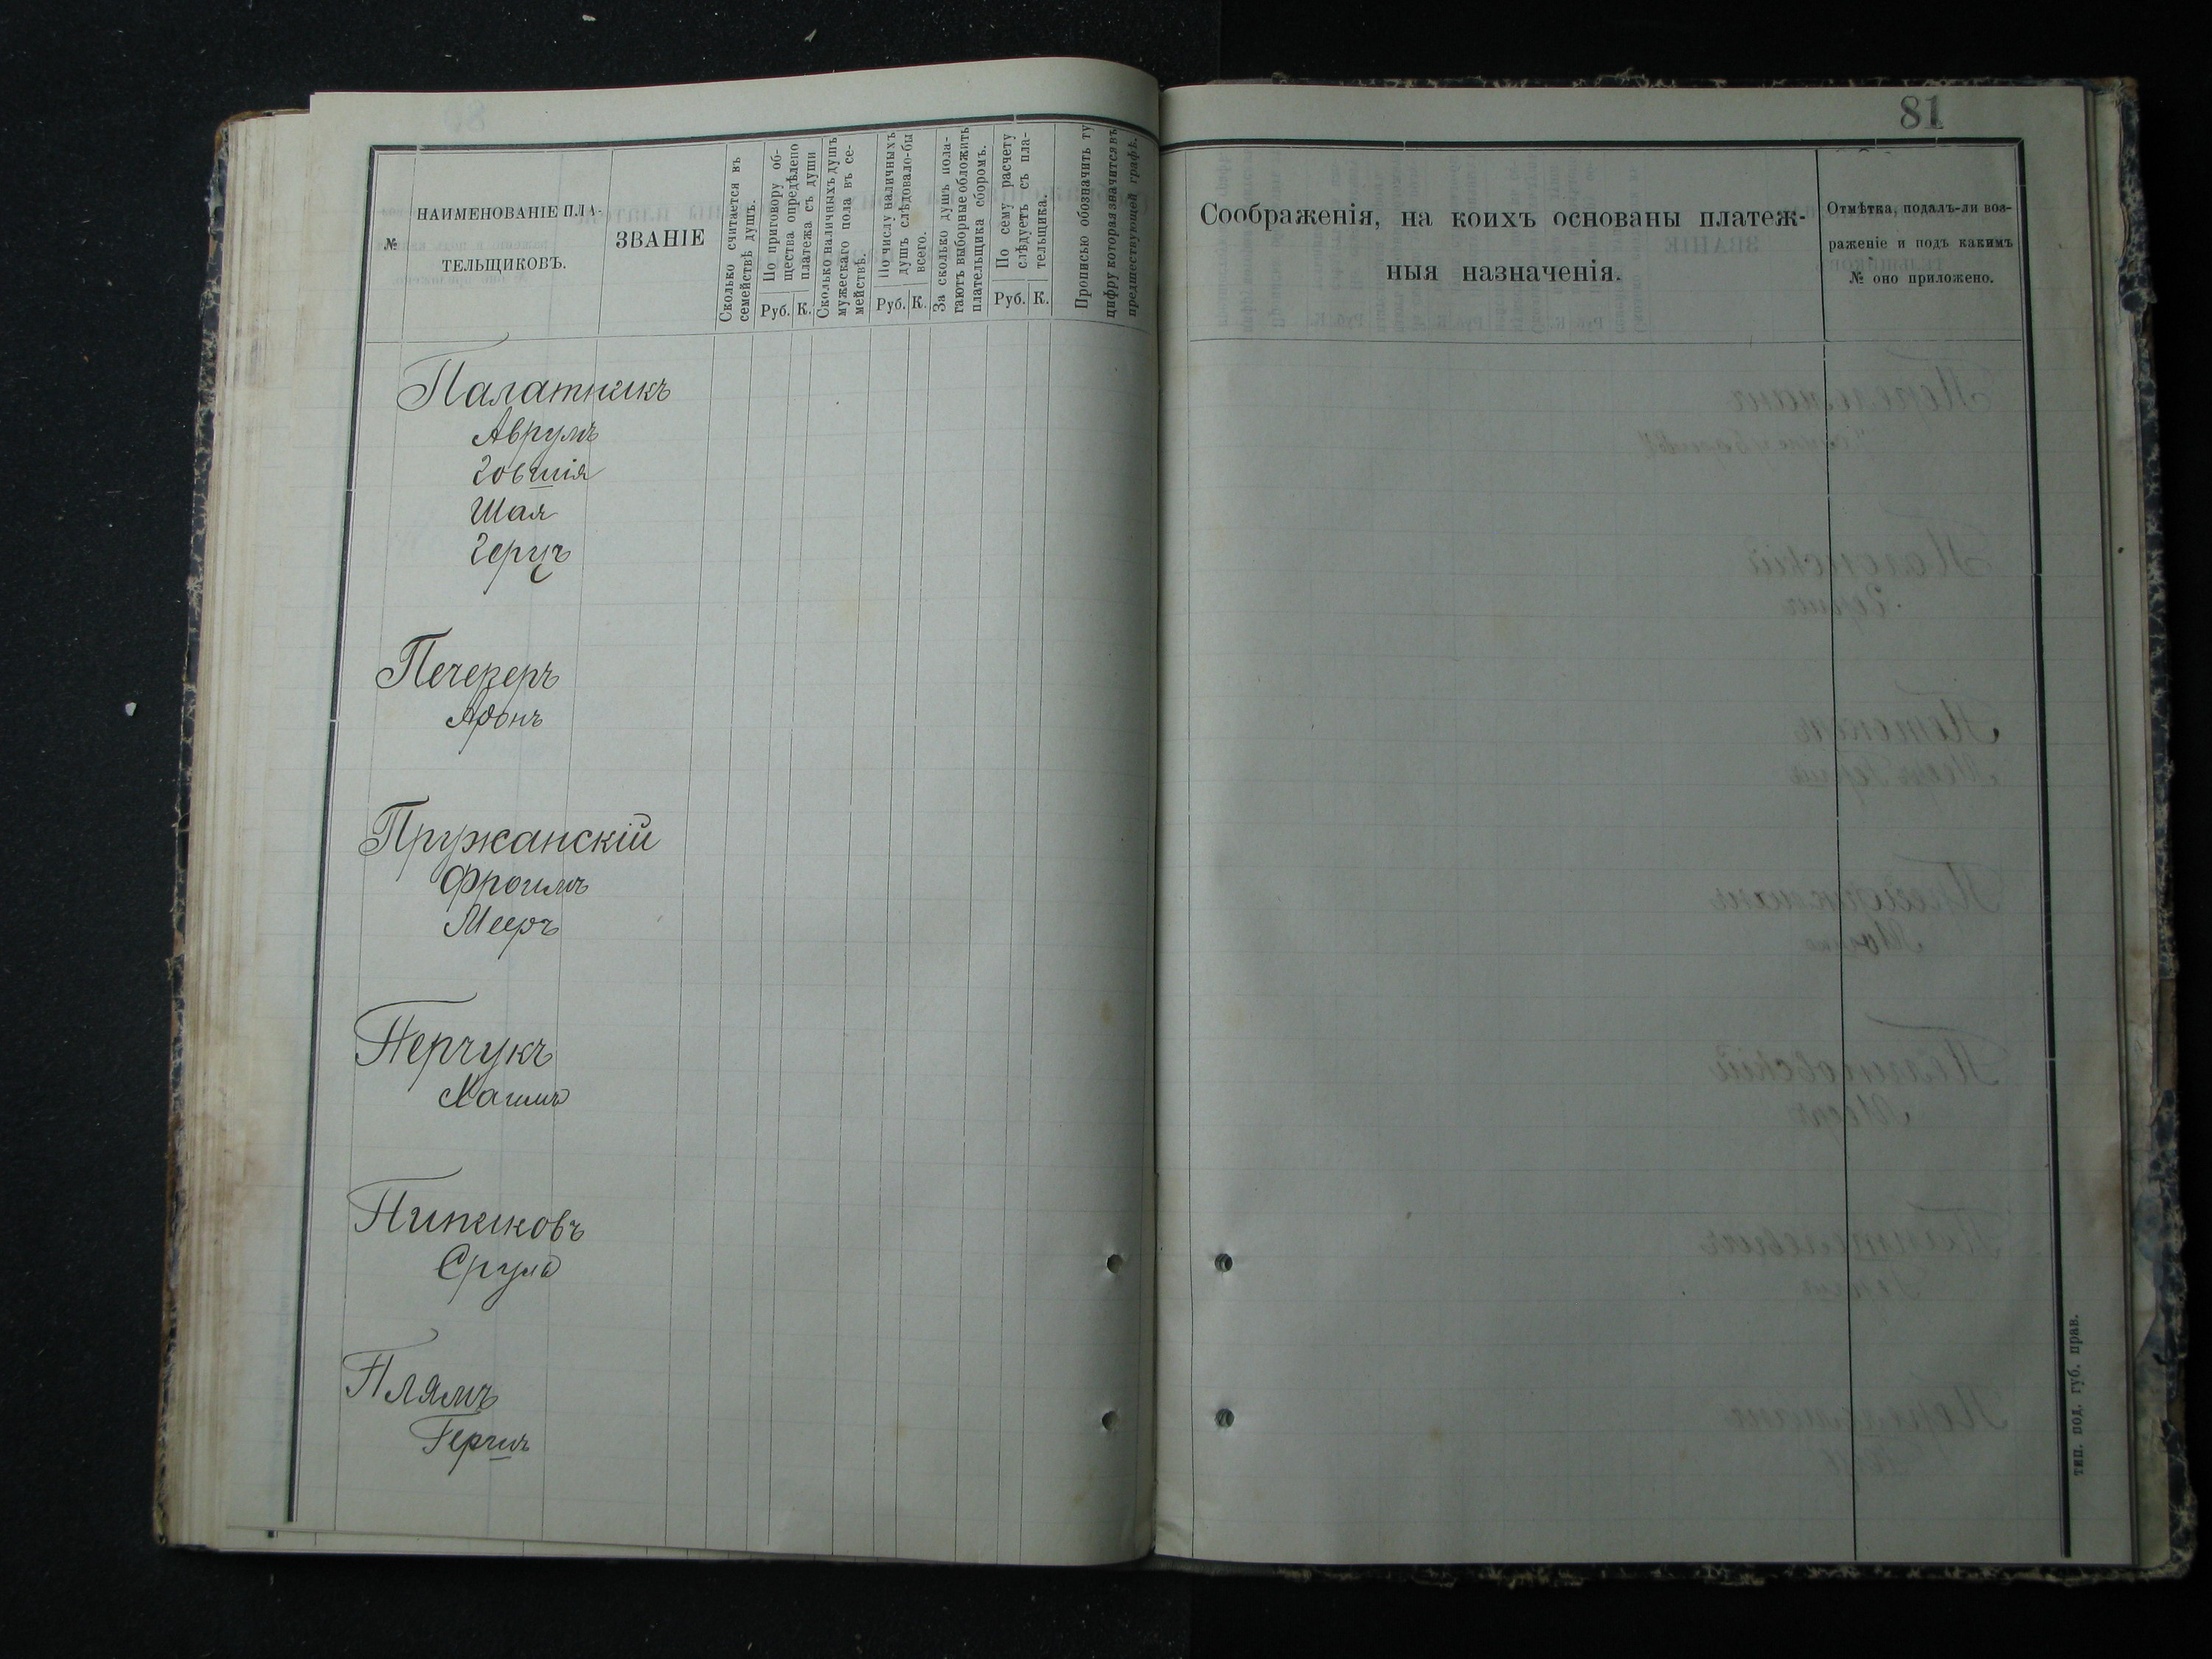 №
НАИМЕНОВАНІЕ ПЛА-
ТЕЛЬЩИКОВЪ.
ЗВАНІЕ
Сколько считается въ
семействѣ душъ.
По приговору об-
щества опредѣлено
платежа съ души
Руб. К.
Сколько наличныхъ душъ
мужескаго пола въ се-
мействѣ.
По числу наличныхъ
душъ слѣдовало-бы
всего.
Руб. К.
За сколько душъ пола-
гаютъ выборные обложить
плательщика сборомъ.
По сему расчету
слѣдуетъ съ пла-
тельщика.
Руб. К.
Прописью обозначить ту
цифру которая значится въ
предшествующей графѣ.
Палатникъ
Аврумъ
Говшія
Шая
Герцъ
Печеръ
Аронъ
Пружанскій
Фроимъ
Мееръ
Перчукъ
Хаимъ
Пипиковъ
Сруль
Плямъ
Гершъ
81
Соображенія, на коихъ основаны платеж-
ныя назначенія.
Отмѣтка, подалъ-ли воз-
раженіе и подъ какимъ
№ оно приложено.
тип. под. губ. прав.